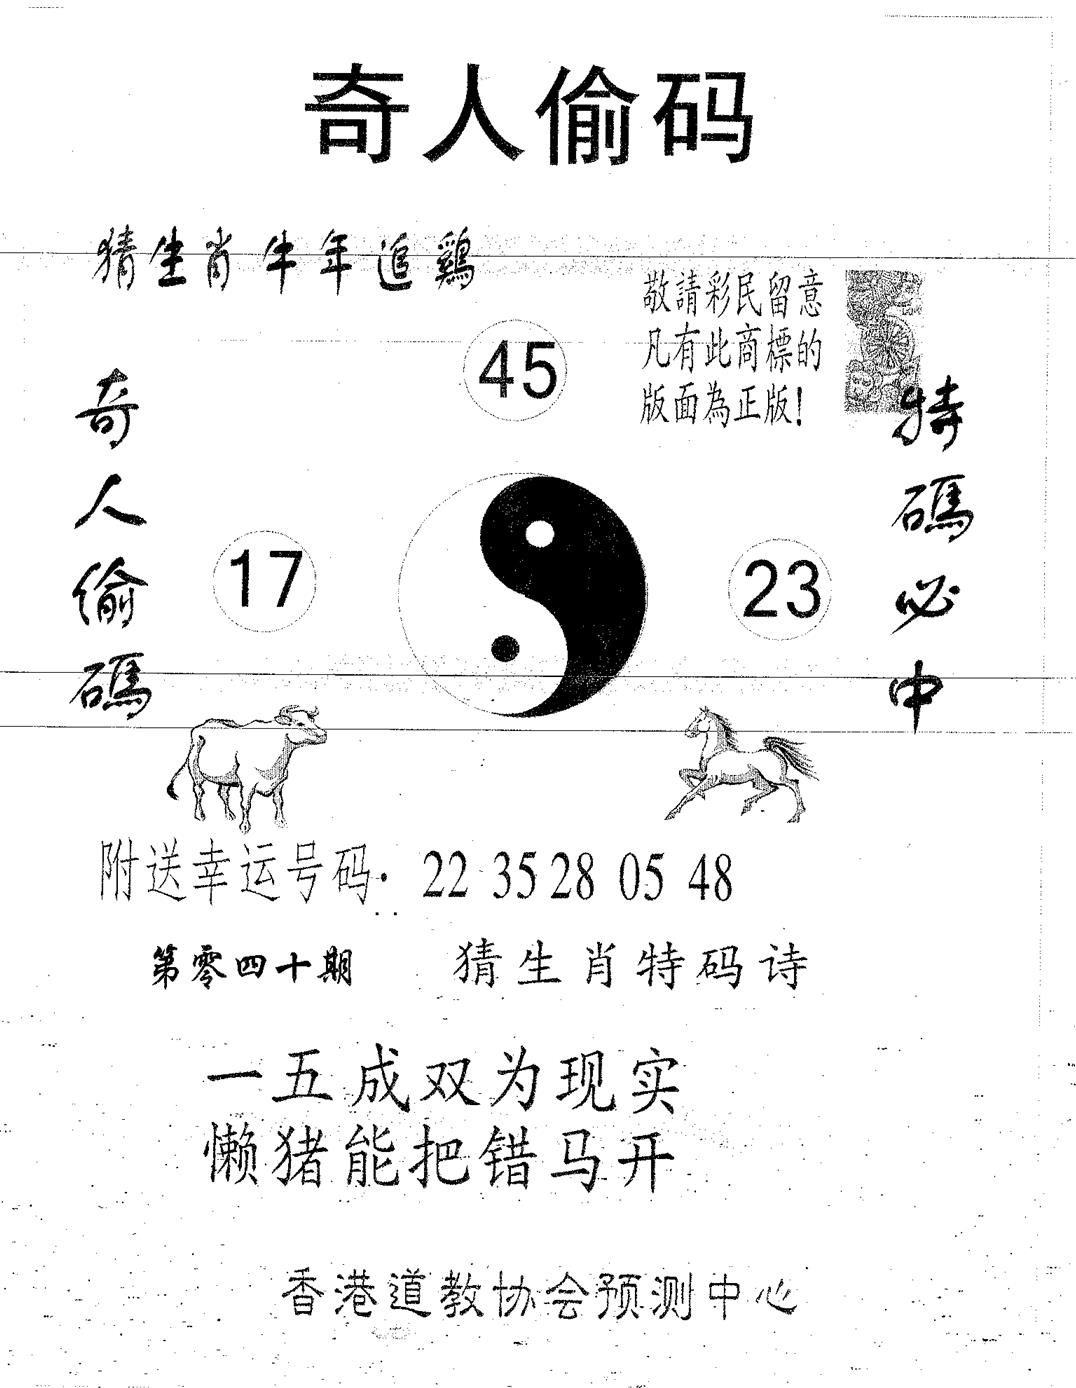 奇人偷码
猜生肖牛年追鷄
敬請彩民留意
凡有此商標的
版面為正版!
45
奇人偷碼
特碼必中
17
23
附送幸运号码: 22 35 28 05 48
第零四十期
猜生肖特码诗
一五成双为现实
懒猪能把错马开
香港道教协会预测中心